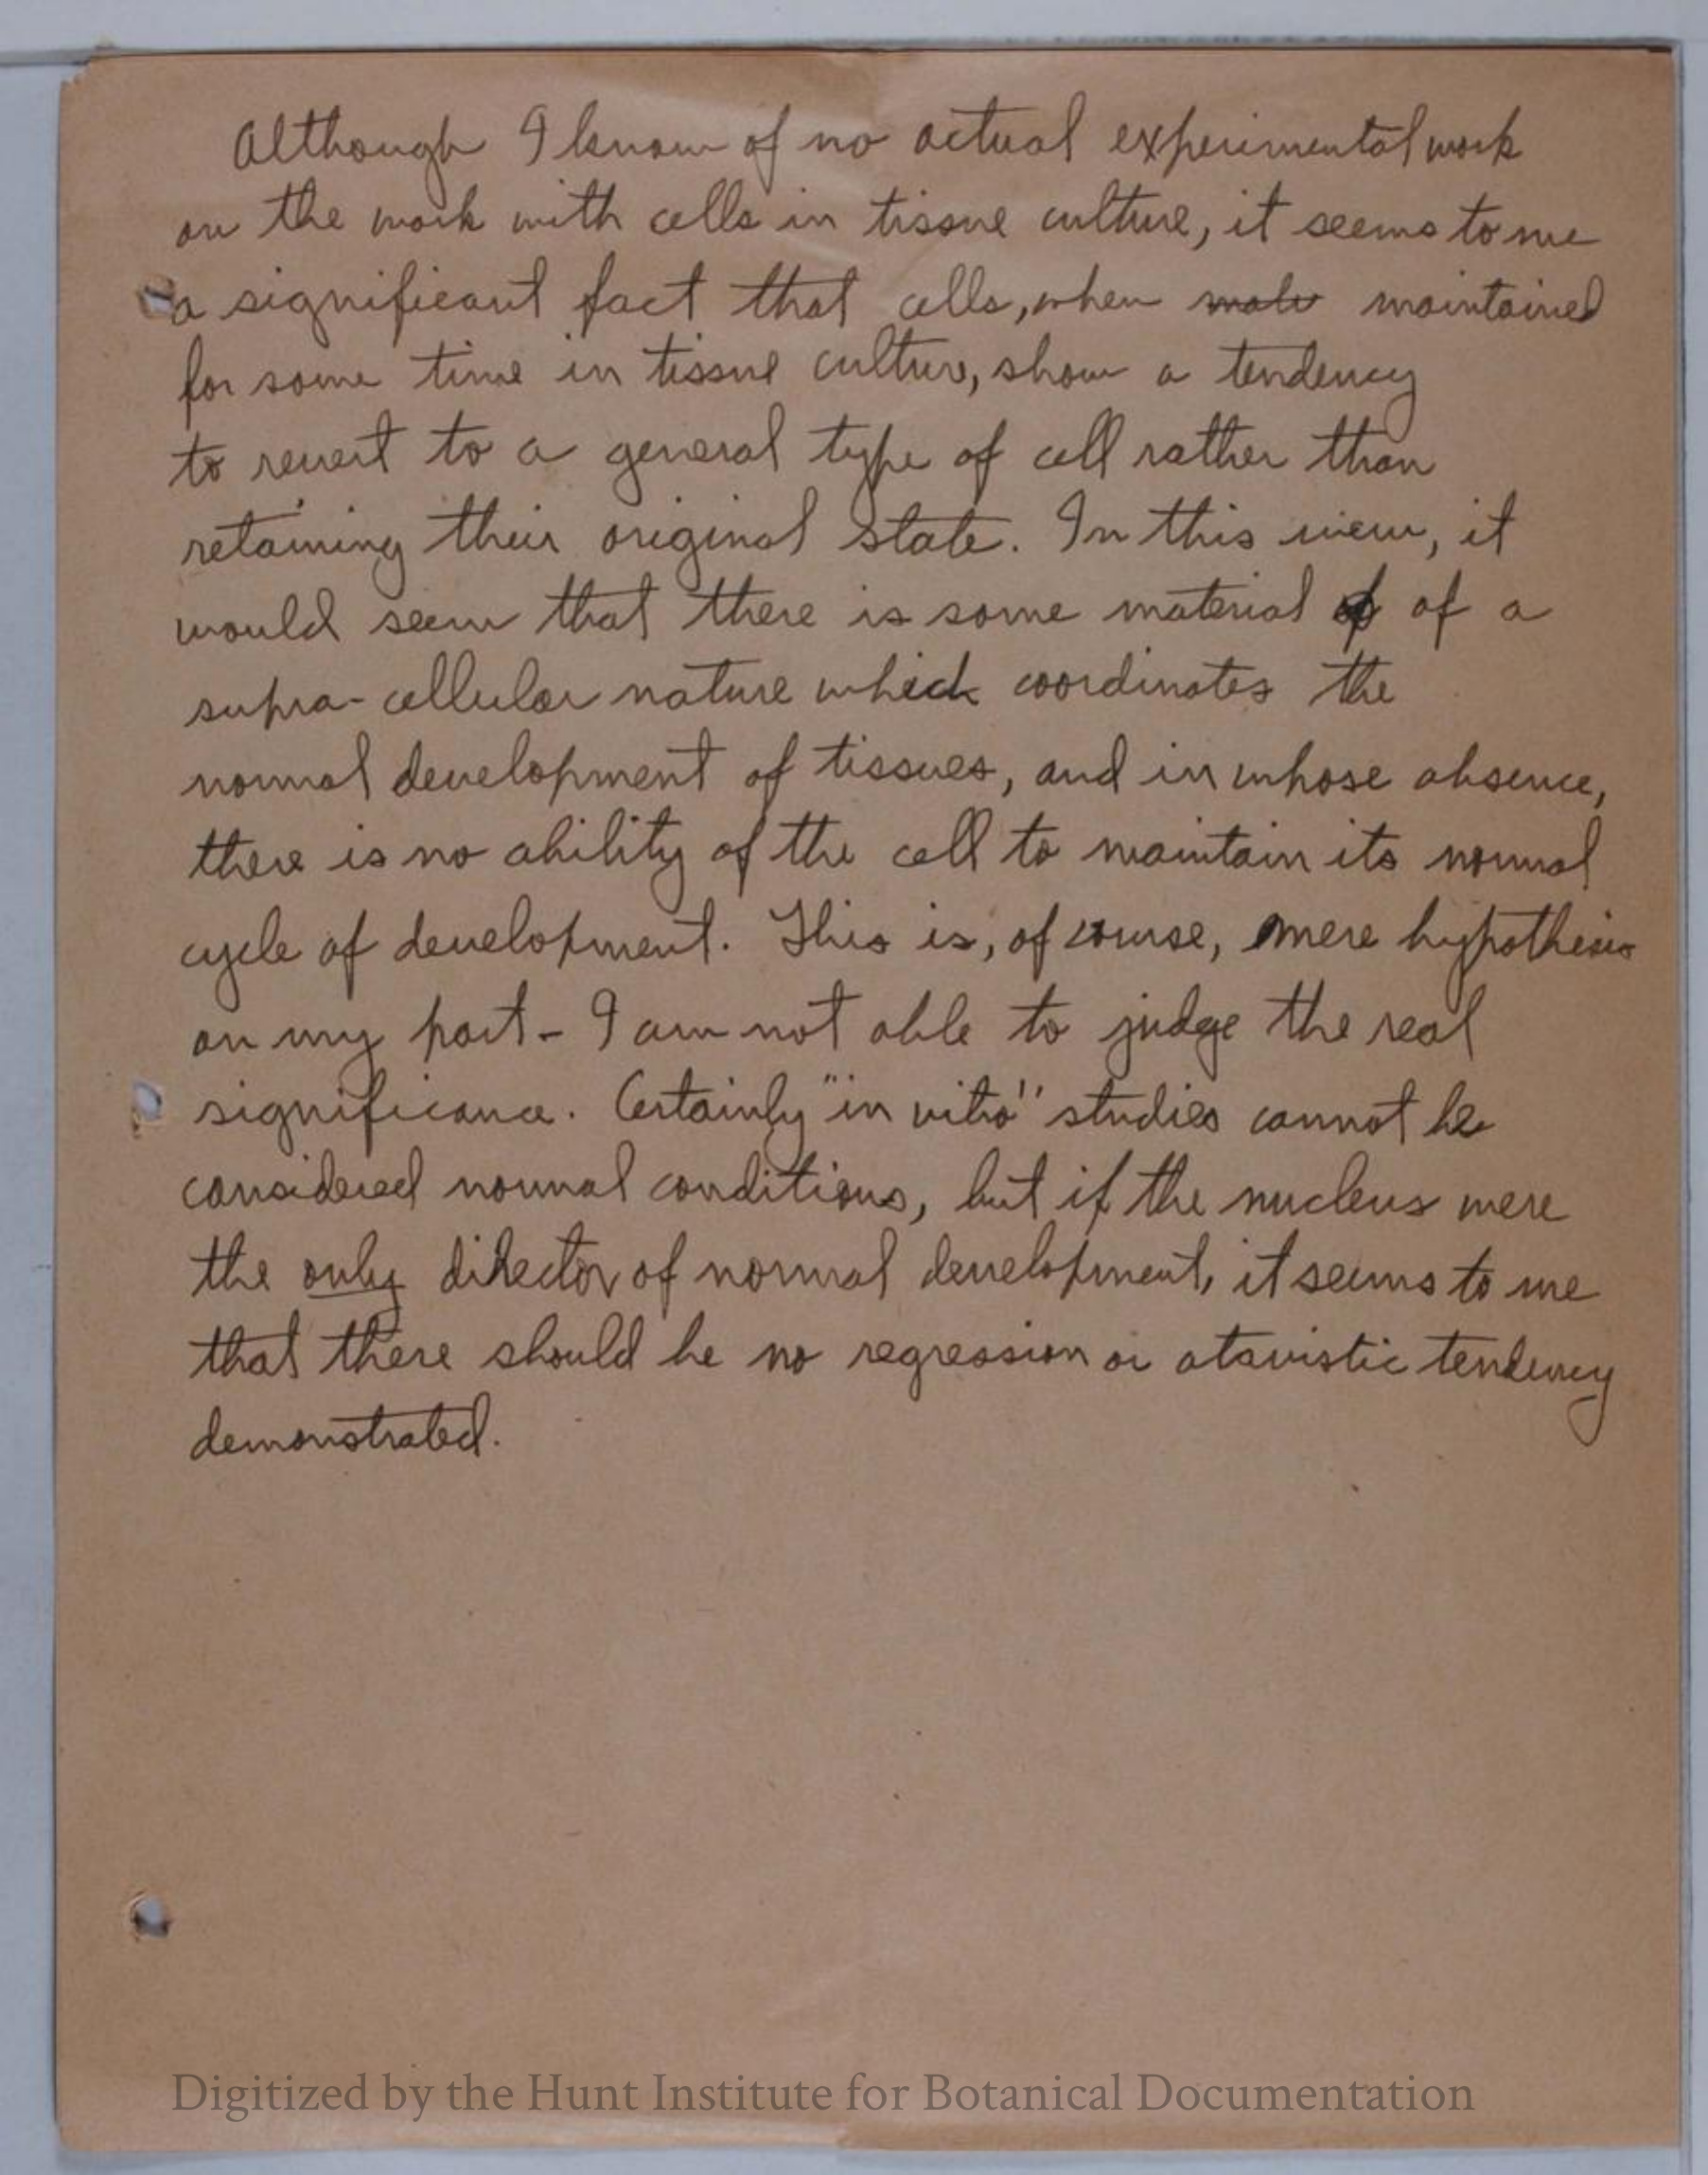 Although I know of no actual experimental work
on the work with cells in tissue culture, it seems to me
a significant fact that cells, when maintained
for some time in tissue culture, show a tendency
to revert to a general type of cell rather than
retaining their original state. In this view, it
would seem that there is some material of a
supra-cellular nature which coordinates the
normal development of tissues, and in whose absence,
there is no ability of the cell to maintain its normal
cycle of development. This is, of course, mere hypothesis
on my part - I am not able to judge the real
significance. Certainly "in vitro" studies cannot be
considered normal conditions, but if the nucleus were
the only director of normal development, it seems to me
that there should be no regression or atavistic tendency
demonstrated.
Digitized by the Hunt Institute for Botanical Documentation